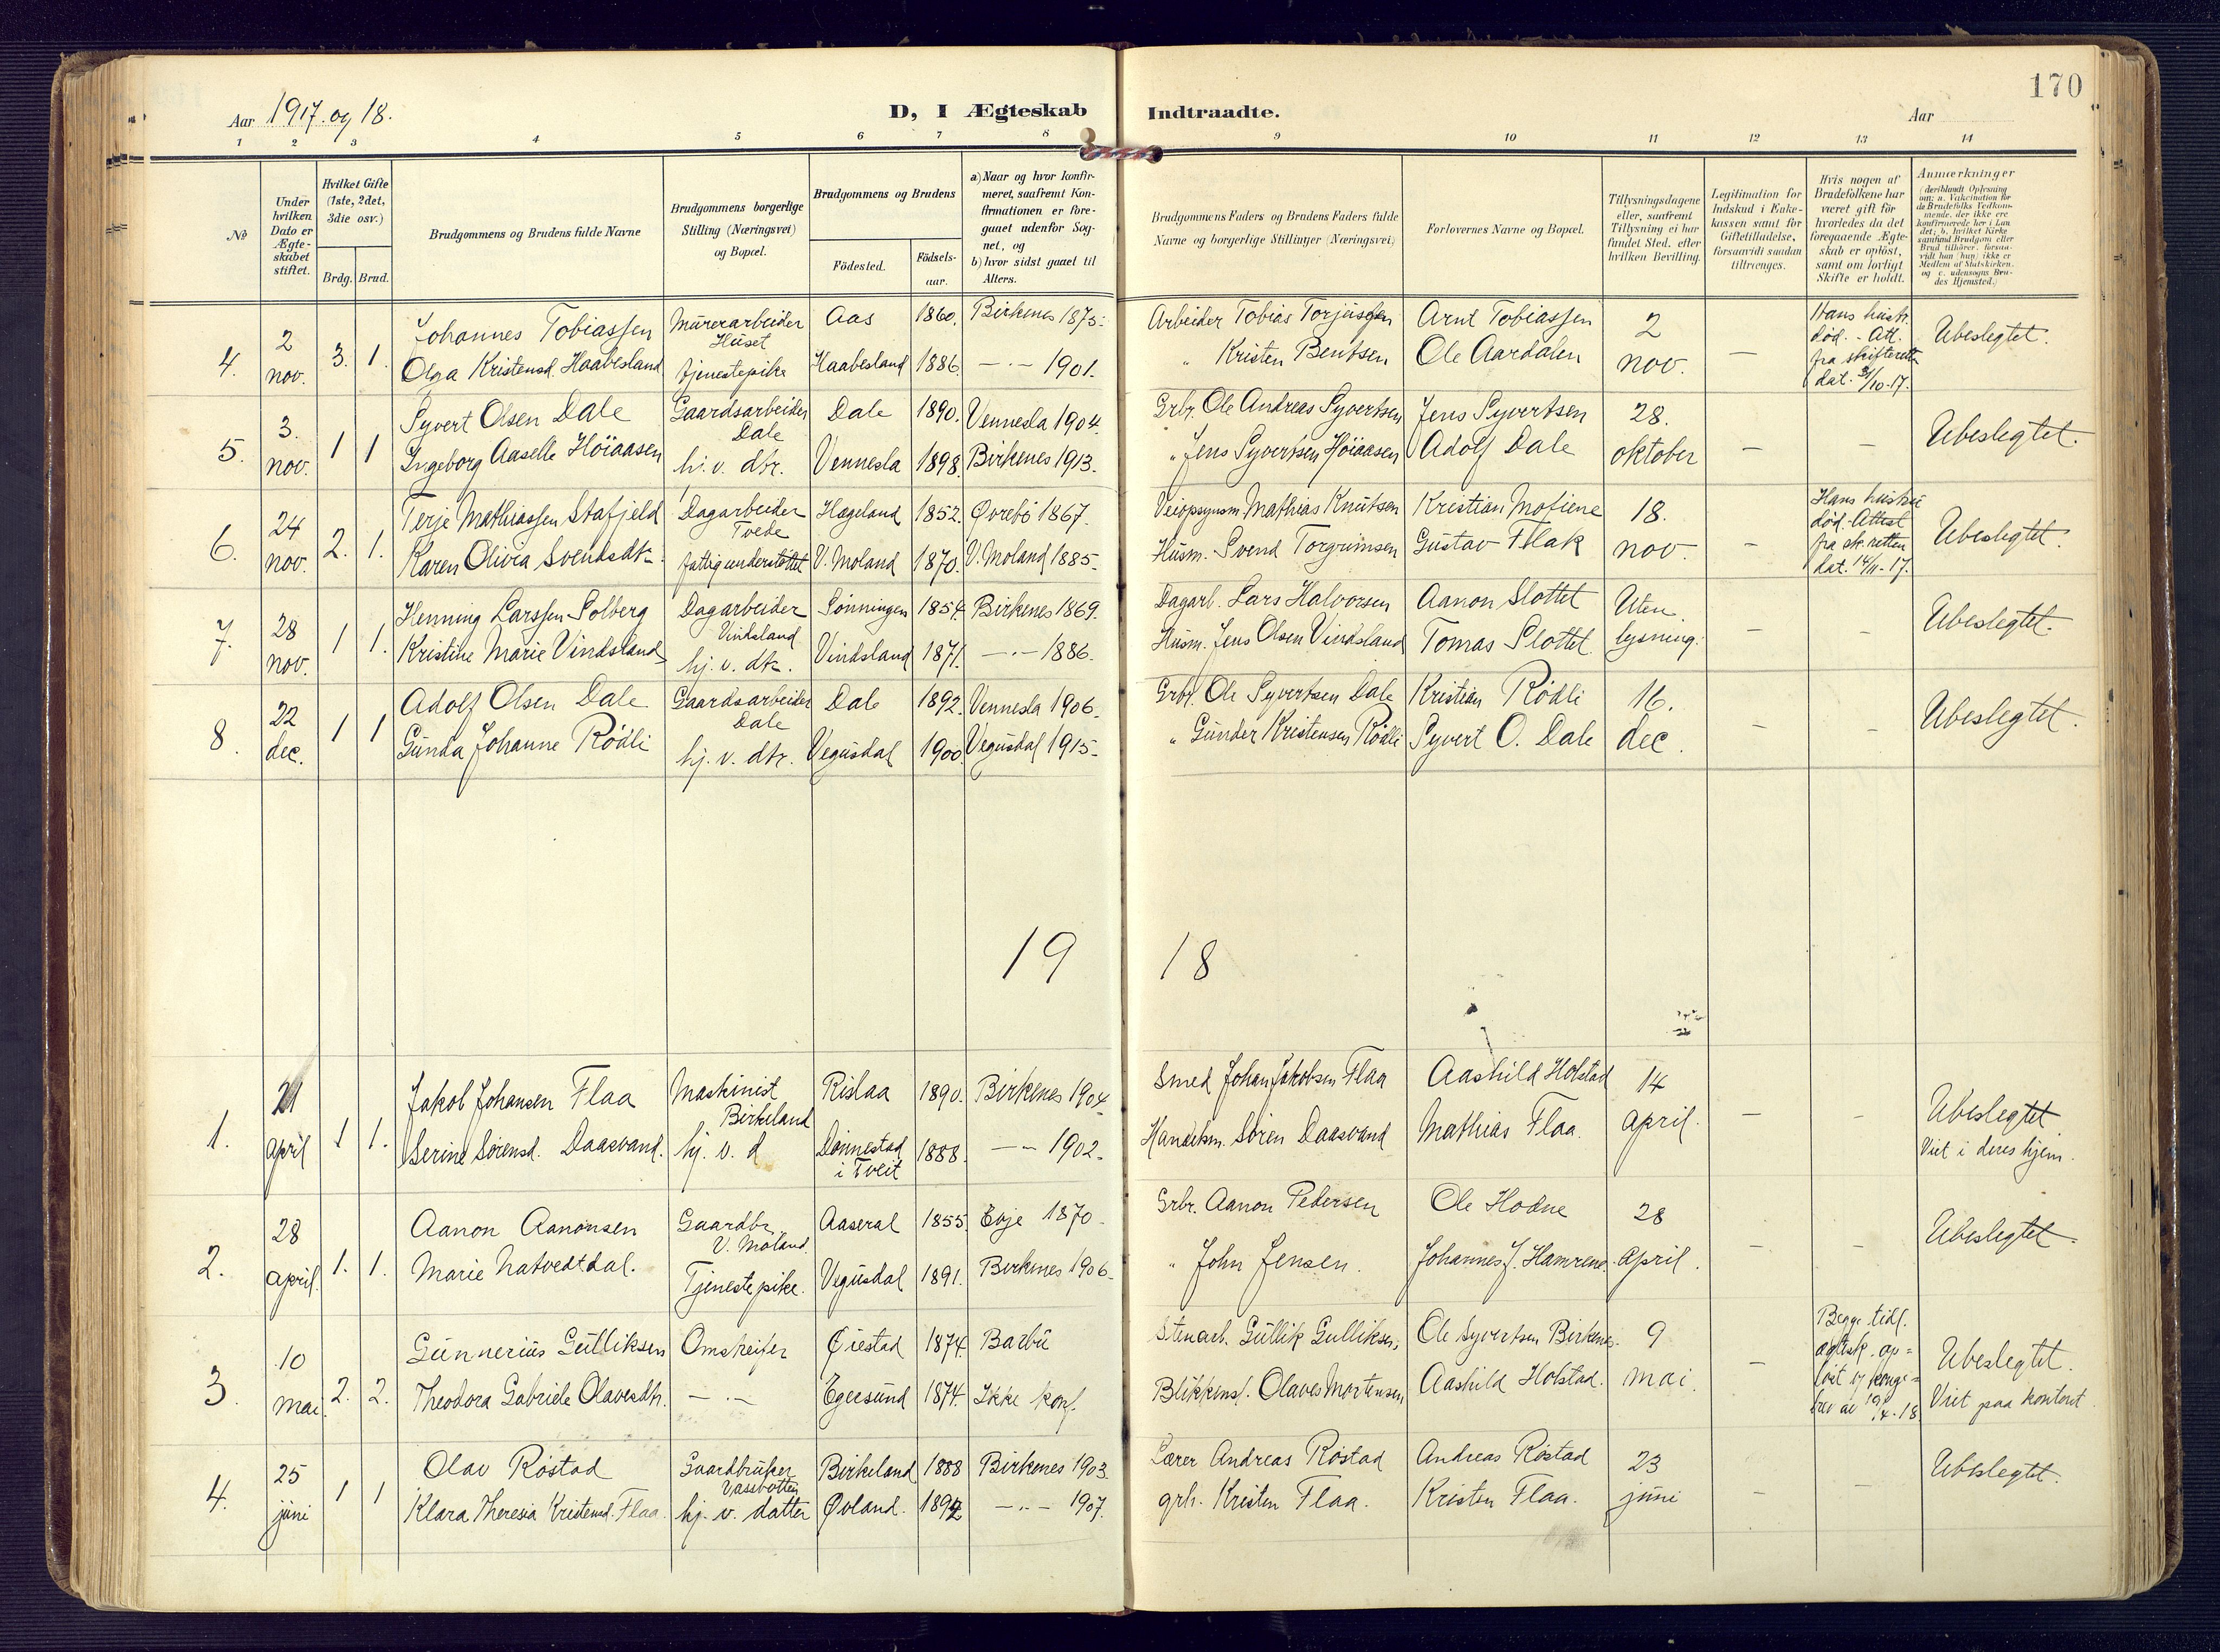 170
Aar 1917. og 18.
D, I Ægteskab Indtraadte.
Aar
1 2 3 4 5 6 7 8 9 10 11 12 13 14
No
Under hvilken Dato er Ægteskabet stiftet.
Hvilket Gifte (1ste, 2det, 3die osv.)
Brdg. Brud.
Brudgommens og Brudens fulde Navne
Brudgommens borgerlige Stilling (Næringsvei) og Bopæl.
Brudgommens og Brudens
Födested.
Födsels-aar.
a) Naar og hvor konfirmeret, saafremt Konfirmationen er foregaaet udenfor Sognet, og
b) hvor sidst gaaet til Alters.
Brudgommens Faders og Brudens Faders fulde Navne og borgerlige Stillinger (Næringsvei)
Forlovernes Navne og Bopæl.
Tillysningsdagene eller, saafremt Tillysning ei har fundet Sted, efter hvilken Bevilling.
Legitimation for Indskud i Enkekassen samt for Giftetilladelse, forsaavidt saadan tiltrænges.
Hvis nogen af Brudefolkene har været gift för hvorledes da det foregaaende Ægteskab er oplöst, samt om lovligt Skifte er holdt.
Anmærkninger
4. 2 nov. 3. 1.
Johannes Tobiassen Murerarbeider Huset Aas 1860. Birkenes 1875. Arbeider Tobias Torjussen Arnt Tobiassen 2 nov. — Hans hustr. død. - Att. fra skifteretten dat. 31/10-17. Ubeslegtet.
Olga Kristensd. Haabesland tjenestepike Haabesland 1886. — 1901. " Kristen Bentsen Ole Aardalen
5. 3. nov. 1 1
Syvert Olsen Dale Gaardsarbeider Dale Dale 1890. Vennesla 1904. Grbr. Ole Andreas Syvertsen Jens Syvertsen 28. oktober — — Ubeslegtet.
Ingeborg Aaselle Höiaasen hj. v. dtr. Vennesla 1898. Birkenes 1913. " Jens Syvertsen Höiaasen Adolf Dale
6. 24 nov. 2. 1.
Terje Mathiassen Stafjeld Dagarbeider Tvede Hægeland 1852. Øvrebö 1867. Veiopsynsm. Mathias Knutson Kristian Mofiene 18. nov. — Hans hustru død. Attest fra sk.retten dat. 14/11-17. Ubeslegtet.
Karen Olivia Svendsdtr. fattigunderstöttet V. Moland 1870. V. Moland 1885. Husm. Svend Torgrimsen Gustav Flak
7. 28 nov. 1 1.
Henning Larssen Solberg Dagarbeider Vindsland Sönningen 1854. Birkenes 1869. Dagarb. Lars Halvorsen Aanon Slottet Uten lysning. — — Ubeslegtet.
Kristine Marie Vindsland hj. v. dtr. Vindsland 1871. — 1886. Husm. Jens Olsen Vindsland Tomas Slottet
8. 22 dec. 1 1
Adolf Olsen Dale Gaardsarbeider Dale Dale 1892. Vennesla 1906. Grbr. Ole Syvertsen Dale Kristian Rödli 16. dec. — — Ubeslegtet.
Gunda Johanne Rödli hj. v. dtr. Vegusdal 1900. Vegusdal 1915. " Gunder Kristensen Rödli Syvert O. Dale
19 18
1. 21 april 1 1.
Jakob Johansen Flaa Maskinist Birkeland Rislaa 1890. Birkenes 1904. Smed Johan Jakobsen Flaa Aashild Holstad 14 april. — — Ubeslegtet Viet i deres hjem.
Serine Sörensd. Daasvand. hj. v. d Dönnestad i Tveit 1888. — 1902. Handelsm. Sören Daasvand Mathias Flaa.
2. 28 april. 1. 1.
Aanon Aanonsen Gaardbr. V. Moland. Aaseral 1855. Evje 1870. Grbr. Aanon Pedersen Ole Hodne 28 april. — — Ubeslegtet.
Marie Natvedtdal. Tjenestepike. Vegusdal 1891. Birkenes 1906. " John Jensen. Johannes J. Hamrene.
3. 10 mai. 2. 2.
Gunnerius Gulliksen Omstreifer Öiestad 1874. Barbu Stenarb. Gullik Gulliksen, Ole Syvertsen Birkenes. 9 mai. — Begge tidl. ægtesk. opløst v. kongebrev av 19/4-18 Ubeslegtet. Viet paa kontoret.
Theodora Gabriele Olavesdtr. — Egersund 1874. Ikke konf. Blikkensl. Olaves Mortensen Aashild Holstad.
4. 25 juni 1 1
Olav Röstad Gaardbruker Vassbotten Birkeland 1888 Birkenes 1903. Lærer Andreas Röstad Andreas Röstad 23 juni — — Ubeslegtet.
Klara Theresia Kristensd. Flaa. hj. v. datter Øvland. 1892 — 1907. grb. Kristen Flaa. Kristen Flaa.